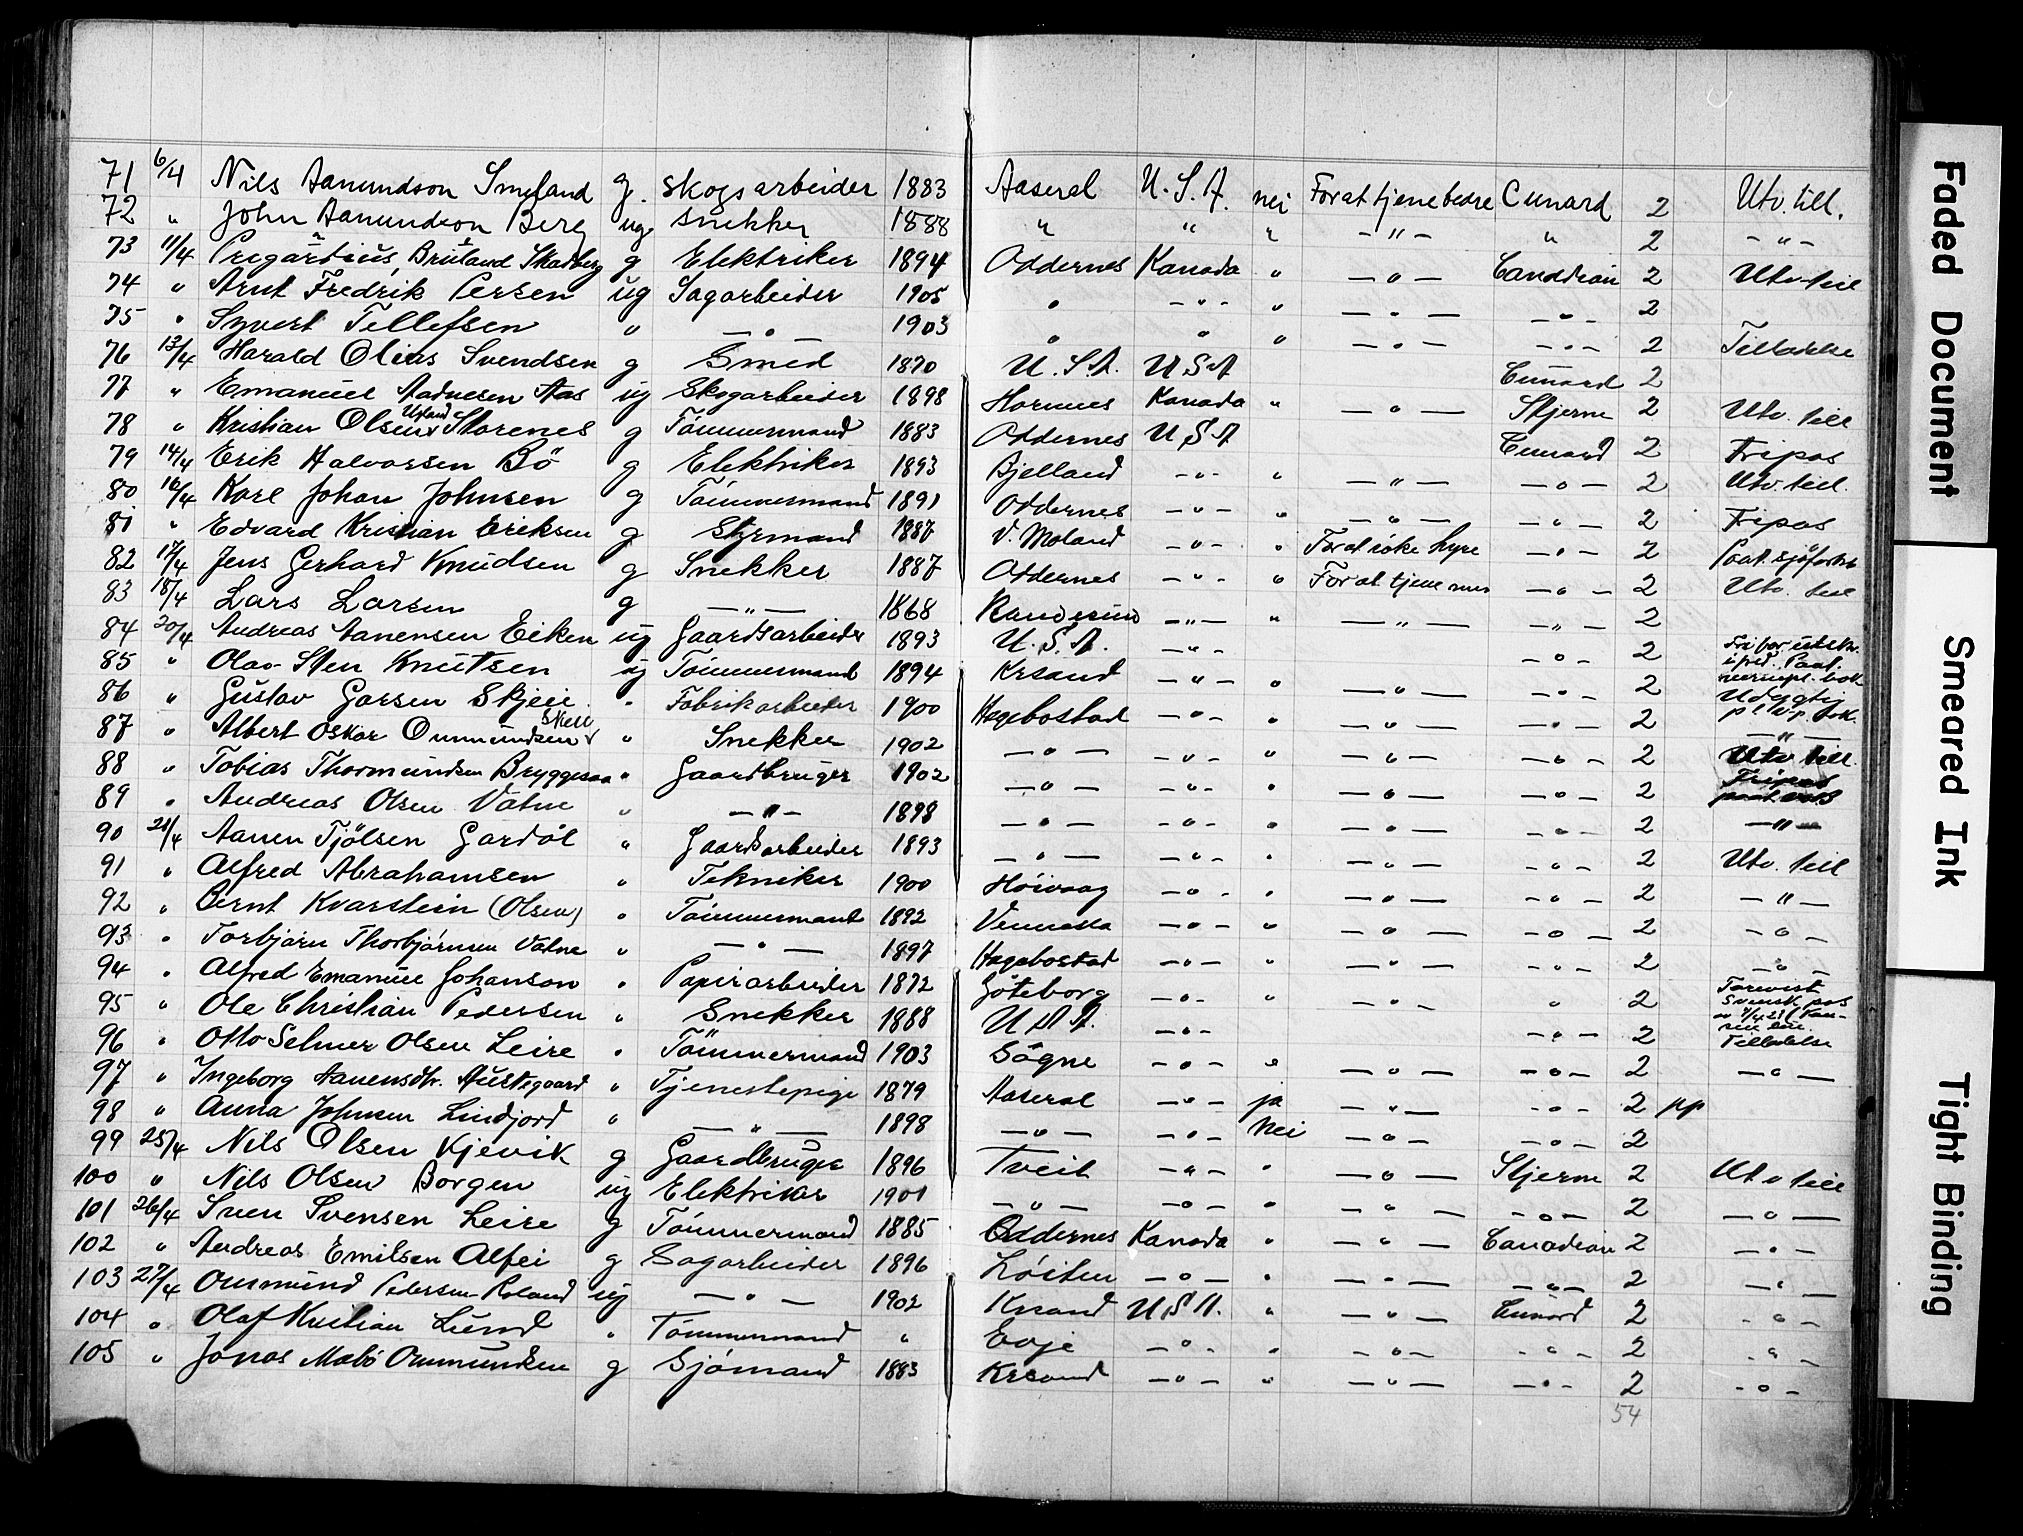 71 6/4 Nils Aanundson Smeland g. skogsarbeider 1883 Aaseral U.S.A. nei For at tjene bedre Cunard 2 Utv. till.
72 " John Aanundson Berg ug. snekker 1888 " " " — " — " 2 — " —
73 11/4 Bruland Skadberg g Elektriker 1894 Oddernes Kanada " — " — Canadian 2 Utv. till
74 " Arnt Fredrik Persen ug Sagarbeider 1905 " — " — " — " — — " — 2
75 " Syvert Tellefsen " — " 1903 " " " — " — — " — 2 Tilladelse
76 13/4 Harald Olius Svendsen g Smed 1870 U.S.A. U S A Cunard 2
77 " Emanuel Aadnesen Aas ug Skogarbeider 1898 Hornnes Kanada " — " — Stjerne 2 Utv. till
78 " Kristian Olsen Ufland Storenes g Tömmermand 1883 Oddernes U S A Cunard 2 Fripas
79 14/4 Erik Halvorsen Bö g Elektriker 1893 Bjelland — " — " — " — — " — 2 Utv. till.
80 16/4 Karl Johan Johnsen g Tömmermand 1891 Oddernes — " — " — " — — " — 2 Fripas
81 " Edvard Kristian Eriksen g Styrmand 1887 V. Moland — " — " For at söke hyre — " — 2 Paat. sjöfartsb
82 17/4 Jens Gerhard Knudsen g Snekker 1887 Oddernes — " — " For at tjene mer — " — 2 Utv. till
83 18/4 Lars Larsen g — " — 1868 Randesund — " — " — " — — " — 2
84 20/4 Andreas Aanensen Eiken ug Gaardsarbeider 1893 U.S.A. — " — — " — 2 Fri for utskr. i fred. Paat.
85 " Olav Sten Knutsen ug Tömmermand 1894 Krsand — " — " — " — — " — 2 bok
86 " Gustav Garsen Skjeie " Fabrikarbeider 1900 Hegebostad — " — " — " — — " — 2 Udygtig
87 " Albert Oskar Ommundsen Skeie " Snekker 1902 — " — — " — " — " — — " — 2 — " —
88 " Tobias Thormundsen Bryggesaa " Gaardbruger 1902 — " — — " — " — " — — " — 2 Utv till.
89 " Andreas Olsen Vatne " — " — 1898 — " — — " — " — " — — " — 2 — " —
90 21/4 Aanen Tjölsen Gardöl " Gaardsarbeider 1893 — " — — " — " — " — — " — 2 Utv. till
91 " Alfred Abrahamsen " Tekniker 1900 Höivaag — " — " — " — — " — 2 — " —
92 " Bernt Kvarstein (Olsen) " Tömmermand 1892 Vennesla — " — " — " — — " — 2 — " —
93 " Torbjörn Thorbjörnsen Vatne " — " — 1897 Hegebostad — " — " — " — — " — 2 — " —
94 " Alfred Emanuel Johanson " Papirarbeider 1872 Göteborg — " — " — " — " 2 Forevist Svensk pas
95 " Ole Christian Pedersen " Snekker 1888 U S A. — " — — " — 2
96 " Otto Selmer Olsen Leire " Tömmermand 1903 Sögne — " — " — " — — " — 2 Tilladelse
97 " Ingeborg Aanensdtr. Austegaard " Tjenestepige 1879 Aaseral — " — ja — " — — " — 2 pp — " —
98 " Anna Johnsen Lindjord " — " — 1898 — " — — " — Nei — " — — " — 2
99 25/4 Nils Olsen Kjevik g Gaardbruger 1896 Tveit — " — " — " — Stjerne 2 Utv till
100 " Nils Olsen Borgen ug Elektriker 1901 — " — — " — " — " — — " — 2 — " —
101 26/4 Sven Svensen Leire g Tömmermand 1885 Oddernes Kanada " — " — Canadian 2 — " —
102 " Andreas Emilsen Alfei g Sagarbeider 1896 Löiten — " — " — " — — " — 2 — " —
103 27/4 Ommund Pedersen Roland ug — " — 1902 Krsand U S A. " — " — Cunard 2 — " —
104 " Olaf Kristian Lund " Tömmermand " Evje — " — " — " — — " — 2 — " —
105 " Jonas Mabö Ommundsen g Sjömand 1883 Krsand — " — " — " — — " — 2 — " —
54
Faded Document
Smeared Ink
Tight Binding